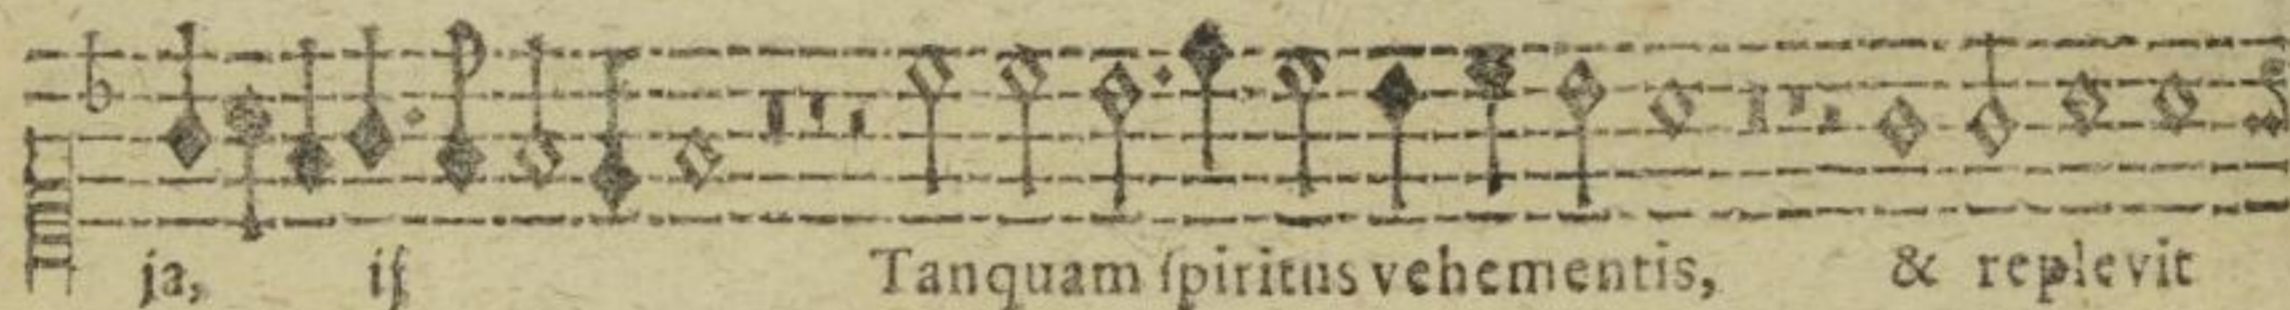 ja, iſ Tanquam ſpiritus vehementis, & replevit